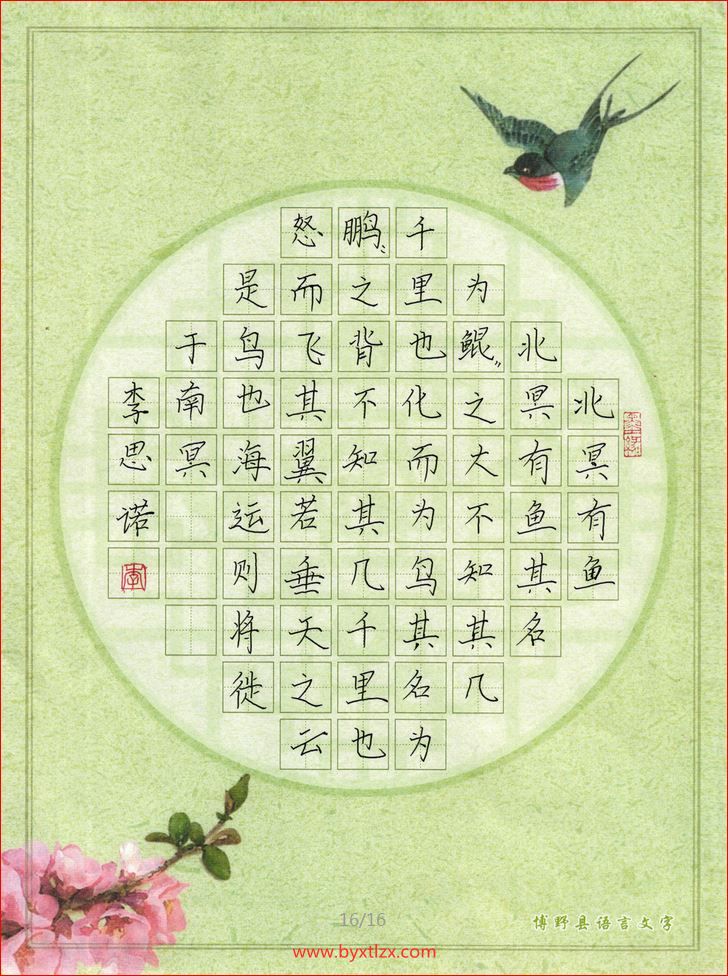 北冥有鱼
北冥有鱼其名
为鲲〻之大不知其几
千里也化而为鸟其名为
鹏〻之背不知其几千里也
怒而飞其翼若垂天之云
是鸟也海运则将徙
于南冥
李思诺
李
16/16
博野县语言文字
www.byxtlzx.com